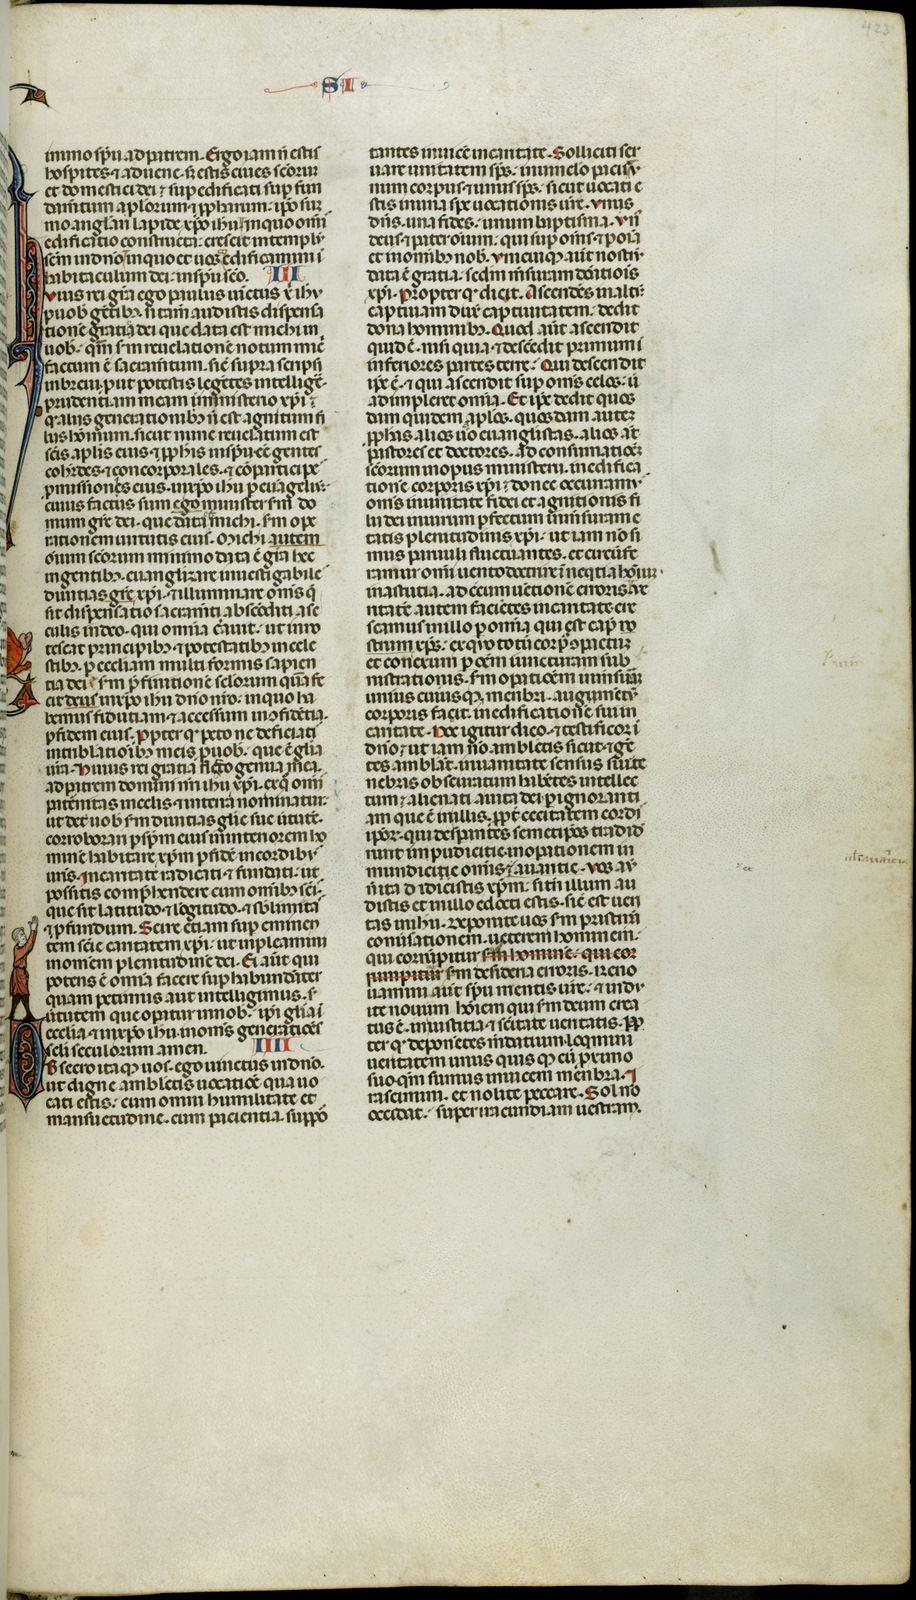 423
SI
in uno spu ad patrem. Ergo iam n̄ estis
hospites ⁊ aduene. sʒ estis ciues scōrum
et domestici dei ⁊ sup edificati sup fun
damtum aplorum ⁊ ppharum. ipo sum
mo anglari lapide xpo ihu in quo omīs
edificatio constructa. crescit in templū
scm in dno in quo et uos ꝯedificamini ī
habitaculum dei. in spu sco. III
Huius rei grā ego paulus uinctus x̄ ihu
p uob gētibȝ. si tam̄ audistis dispensa
tionē gratia dei que data est michi in
uob. qm̄ sm reuelationē notum mić
factum ē sacramtum. sic̄ supra scripsi
in breui. put potestis legētes intellige̅
prudentiam meam in ministerio xpi ⁊
q aliis generationibȝ n̄ est agnitum fi
liis hominum. sicut nunc reuelatum est
scis aplis eius ⁊ pphis in spu. eē gentes
cohrdes ⁊ concorporales. ⁊ cōparticipes
pmissionēs eius. in xpo ihu p euāgeliū.
cuius factus sum ego minister sm do
num gre dei. que data michi. sm ope
rationem uirtutis eius. Michi autem
oīum scōrum minimo data ē gra hec
in gentibȝ. euanglizare inuestigabiles
diuitias gre xpi. ⁊ illuminare omīs q̄
sit dispensatio sacramti absconditi a se
culis in deo. qui omnia c̄auit. ut inno
tescat principibȝ ⁊ potestatibȝ in cele
stibȝ. p eccliam multi formis sapien
tia dei. sm p̄finitionē sclorum quā fe
cit deus in xpo ihu dno nro. in quo ha
bemus fidutiam ⁊ accessum in ꝯfidētia.
p fidem eius. ppter qʳ peto ne deficiatis
in tribulatiōibȝ meis p uob. que ē glia
ura. Huius rei gratia flecto genua mea.
ad patrem domini nri ihu xpi. ex q omīs
paternitas in celis ⁊ in terra nominatur.
ut det uob sm diuitias glie sue uirtutē
corroborari p spm eius in interiorem ho
minē habitare xpm p fidē in cordibȝ
uris. In caritate radicati ⁊ fundati. ut
possitis comphendere cum omnibȝ scis.
que sit latitudo ⁊ lōgitudo ⁊ sblimitas
⁊ pfundum. Scire etiam sup eminen
tem scie caritatem xpi. ut inpleamini
in omem plenitudine dei. Ei aut qui
potens ē omnia facere suphabundāter
quam petimus aut intelligimus. sm
uirtutem que opatur in nob. ipi glia ī
ecclia ⁊ in xpo ihu in omīs generatiōes
scli seculorum amen. IIII
Obsecro itaqȝ uos. ego uinctus in dno.
ut digne ambletis uocatiōe qua uo
cati estis. cum omni humilitate et
mansuetudine. cum paciencia. suppor
tantes inuicē in caritate. Solliciti ser
uare unitatem sps. in uinclo pacis.
unum corpus ⁊ unus sps. sicut uocati e
stis in una spe uocationis ure. Unus
dns. una fides. unum baptisma. Un̄
deus ⁊ pater oium. qui sup oms ⁊ p oia
et in omnibȝ nob. Unicuiqȝ aut nostrū
data ē gratia. sedm̄ msuram donatiois
xpi. Propter qʳ dicit. Ascendēs in altū
captiuam duxē captiuitatem. dedit
dona hominibȝ. Quod aut ascendit
quid ē. nisi quia ⁊ descēdit primum ī
inferiores partes terre. Qui descendit
ipe ē. ⁊ qui ascendit sup omīs celos. ut
ad impleret omnia. Et ipe dedit quos
dam quidem aplos. quosdam autē
pphas alios uo euanglistas. alios at
pastores et doctores. ad consumatioēz
scōrum in opus ministerii. in edifica
tionē corporis xpi. donec occuramꝰ
omīs in unitatē fidei et agnitionis fi
lii dei in uirum pfectum in msuram e
tatis plenitudinis xpi. ut iam nō si
mus paruuli fluctuantes. et circūfe
ramur omi uento doctrine ī neqtia hōium.
in astutia. ad ecūmuētionē erroris. Ve
ritatē autem facietes in caritate cre
scamus in illo p omnia qui est capd xp
strum xpus. ex quo totū corp ꝯpactum
et conexum p oēm iuncturam sub
ministrationis. sm opatiōem in msurā
unius cuiusqȝ membri. augmentū
corporis facit. in edificationē sui in
caritate. Hoc igitur dico. ⁊ testificor ī
dno ⁊ ut iam nō ambletis sicut ⁊ gē
tes amblāt. in uanitate sensus sui te
nebris obscuratum habētes intellec
tum. alienati a uita dei p ignoranti
am que ē in illis. ppt cecitatem cordis
ipōr. qui despantes semetipos tradide
runt impudicitie. in opationem in
mundicie omīs ⁊ auaritie. Vos aut
n̄ ita didicistis xpm. si tn̄ illum au
distis et in illo edocti estis. sic̄ est ueri
tas in ihu. Deponite uos sm pristinā
conuisationem. ueterem hominem.
qui corrupitur sm homine. qui cor
rumpitur sm desideria erroris. reno
uamini aut spu mentis ure. ⁊ indu
ite nouum hoiem qui sm deum crea
tus ē. in iustitia ⁊ scitate ueritatis. Pp
ter qʳ deponētes mdatium. loqmini
ueritatem unus quisqȝ cū primo
suo. qm̄ sumus inuicem membra. I
rascimini. et nolite peccare. Sol nō
occidat. super iracundiam uestram.